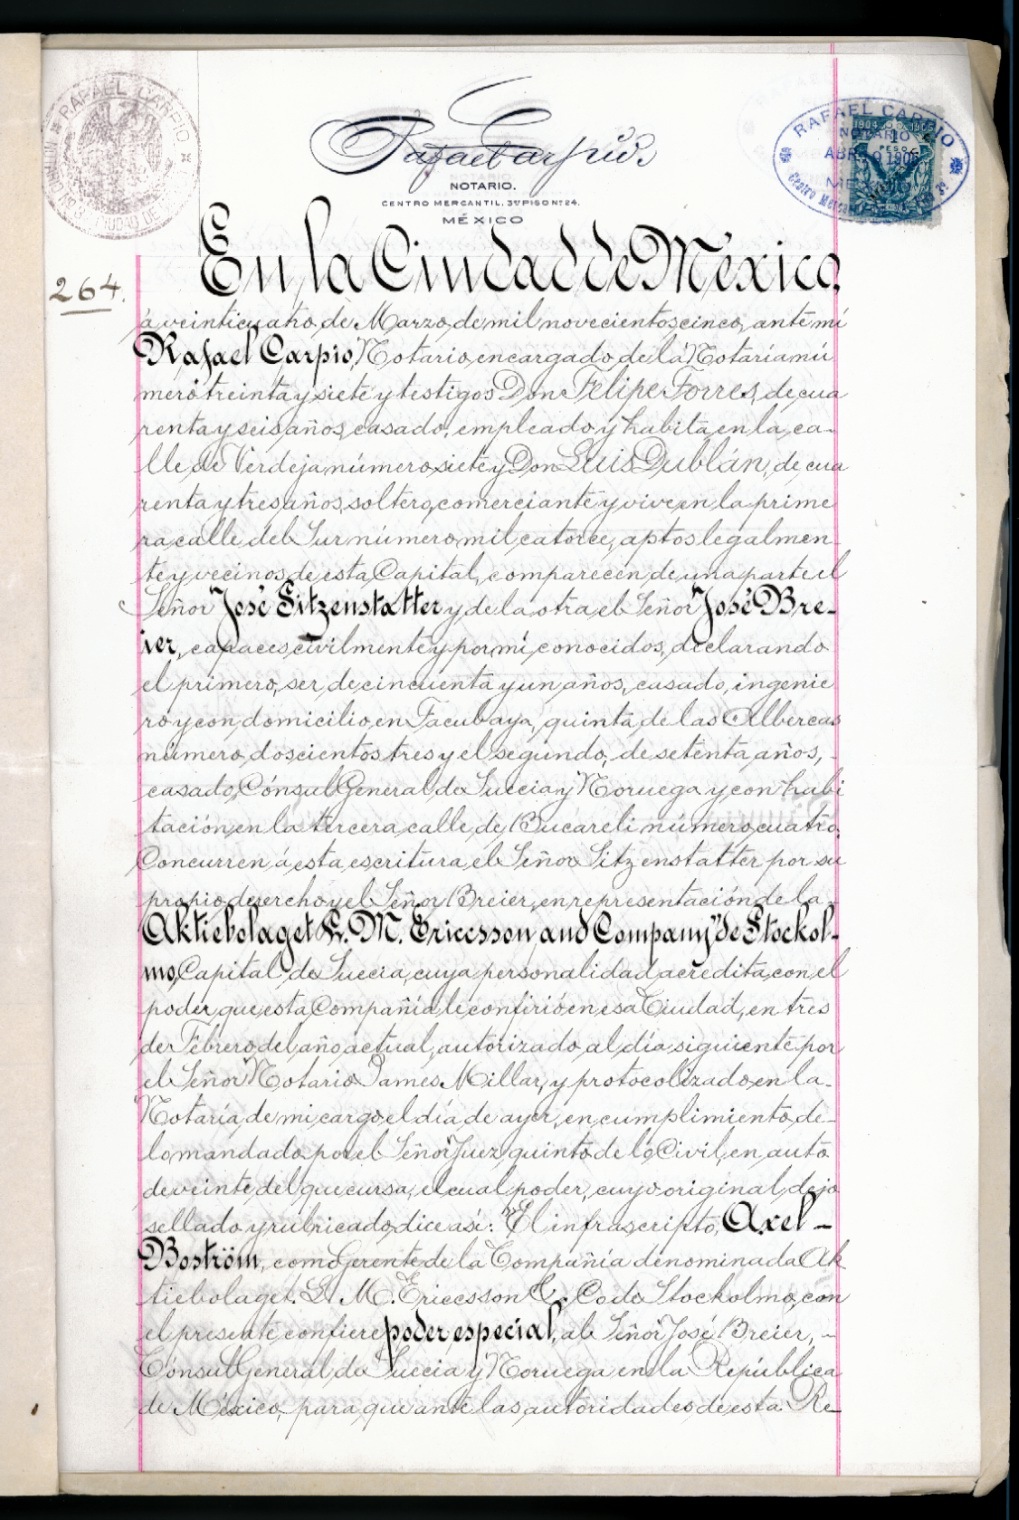 RAFAEL CARPIO
Rafael Carpio
NOTARIO.
CENTRO MERCANTIL. 3er PISO No 24.
MÉXICO
RAFAEL CARPIO
NOTARIO
ABR 1905
MEXICO
1904 1905
PESO
264.
En la Ciudad de México,
á veinticuatro de Marzo de mil novecientos cinco, ante mí
Rafael Carpio, Notario encargado de la Notaría nú
mero treinta y siete y testigos Don Felipe Torres, de cua
renta y seis años, casado, empleado y habita en la ca-
lle de Verdeja número siete y Don Luis Dublán, de cua
renta y tres años, soltero, comerciante y vive en la prime
ra calle del Sur número mil catorce, aptos legalmen-
te y vecinos de esta Capital, comparecen de una parte el
Señor José Sitzenstatter y de la otra el Señor José Bre-
ier, capaces civilmente y por mí conocidos, declarando
el primero, ser de cincuenta y un años, casado, ingenie
ro y con domicilio en Tacubaya, quinta de las Albercas
número doscientos tres y el segundo, de setenta años, -
casado, Cónsul General de Suecia y Noruega y con habi
tación en la tercera calle de Bucareli número cuatro.
Concurren á esta escritura el Señor Sitzenstatter por su
propio derecho y el Señor Breier, en representación de la
Aktiebolaget L. M. Ericcsson and Company" de Stockol-
mo, Capital de Suecia, cuya personalidad acredita con el
poder que esta Compañía le confirió en esa Ciudad, en tres
de Febrero del año actual, autorizado al día siguiente por
el Señor Notario James Millar, y protocolizado en la -
Notaría de mi cargo el día de ayer, en cumplimiento de -
lo mandado por el Señor Juez quinto de lo Civil, en auto
de veinte del que cursa, el cual poder, cuyo original dejo
sellado y rubricado, dice así: "El infrascripto, Axel -
Boström, como Gerente de la Compañía denominada Ak
tiebolaget. L. M. Ericcsson & Co de Stockolmo, con
el presente confiere poder especial, al Señor José Breier, -
Cónsul General de Suecia y Noruega en la República
de México, para que ante las autoridades de esta Re-